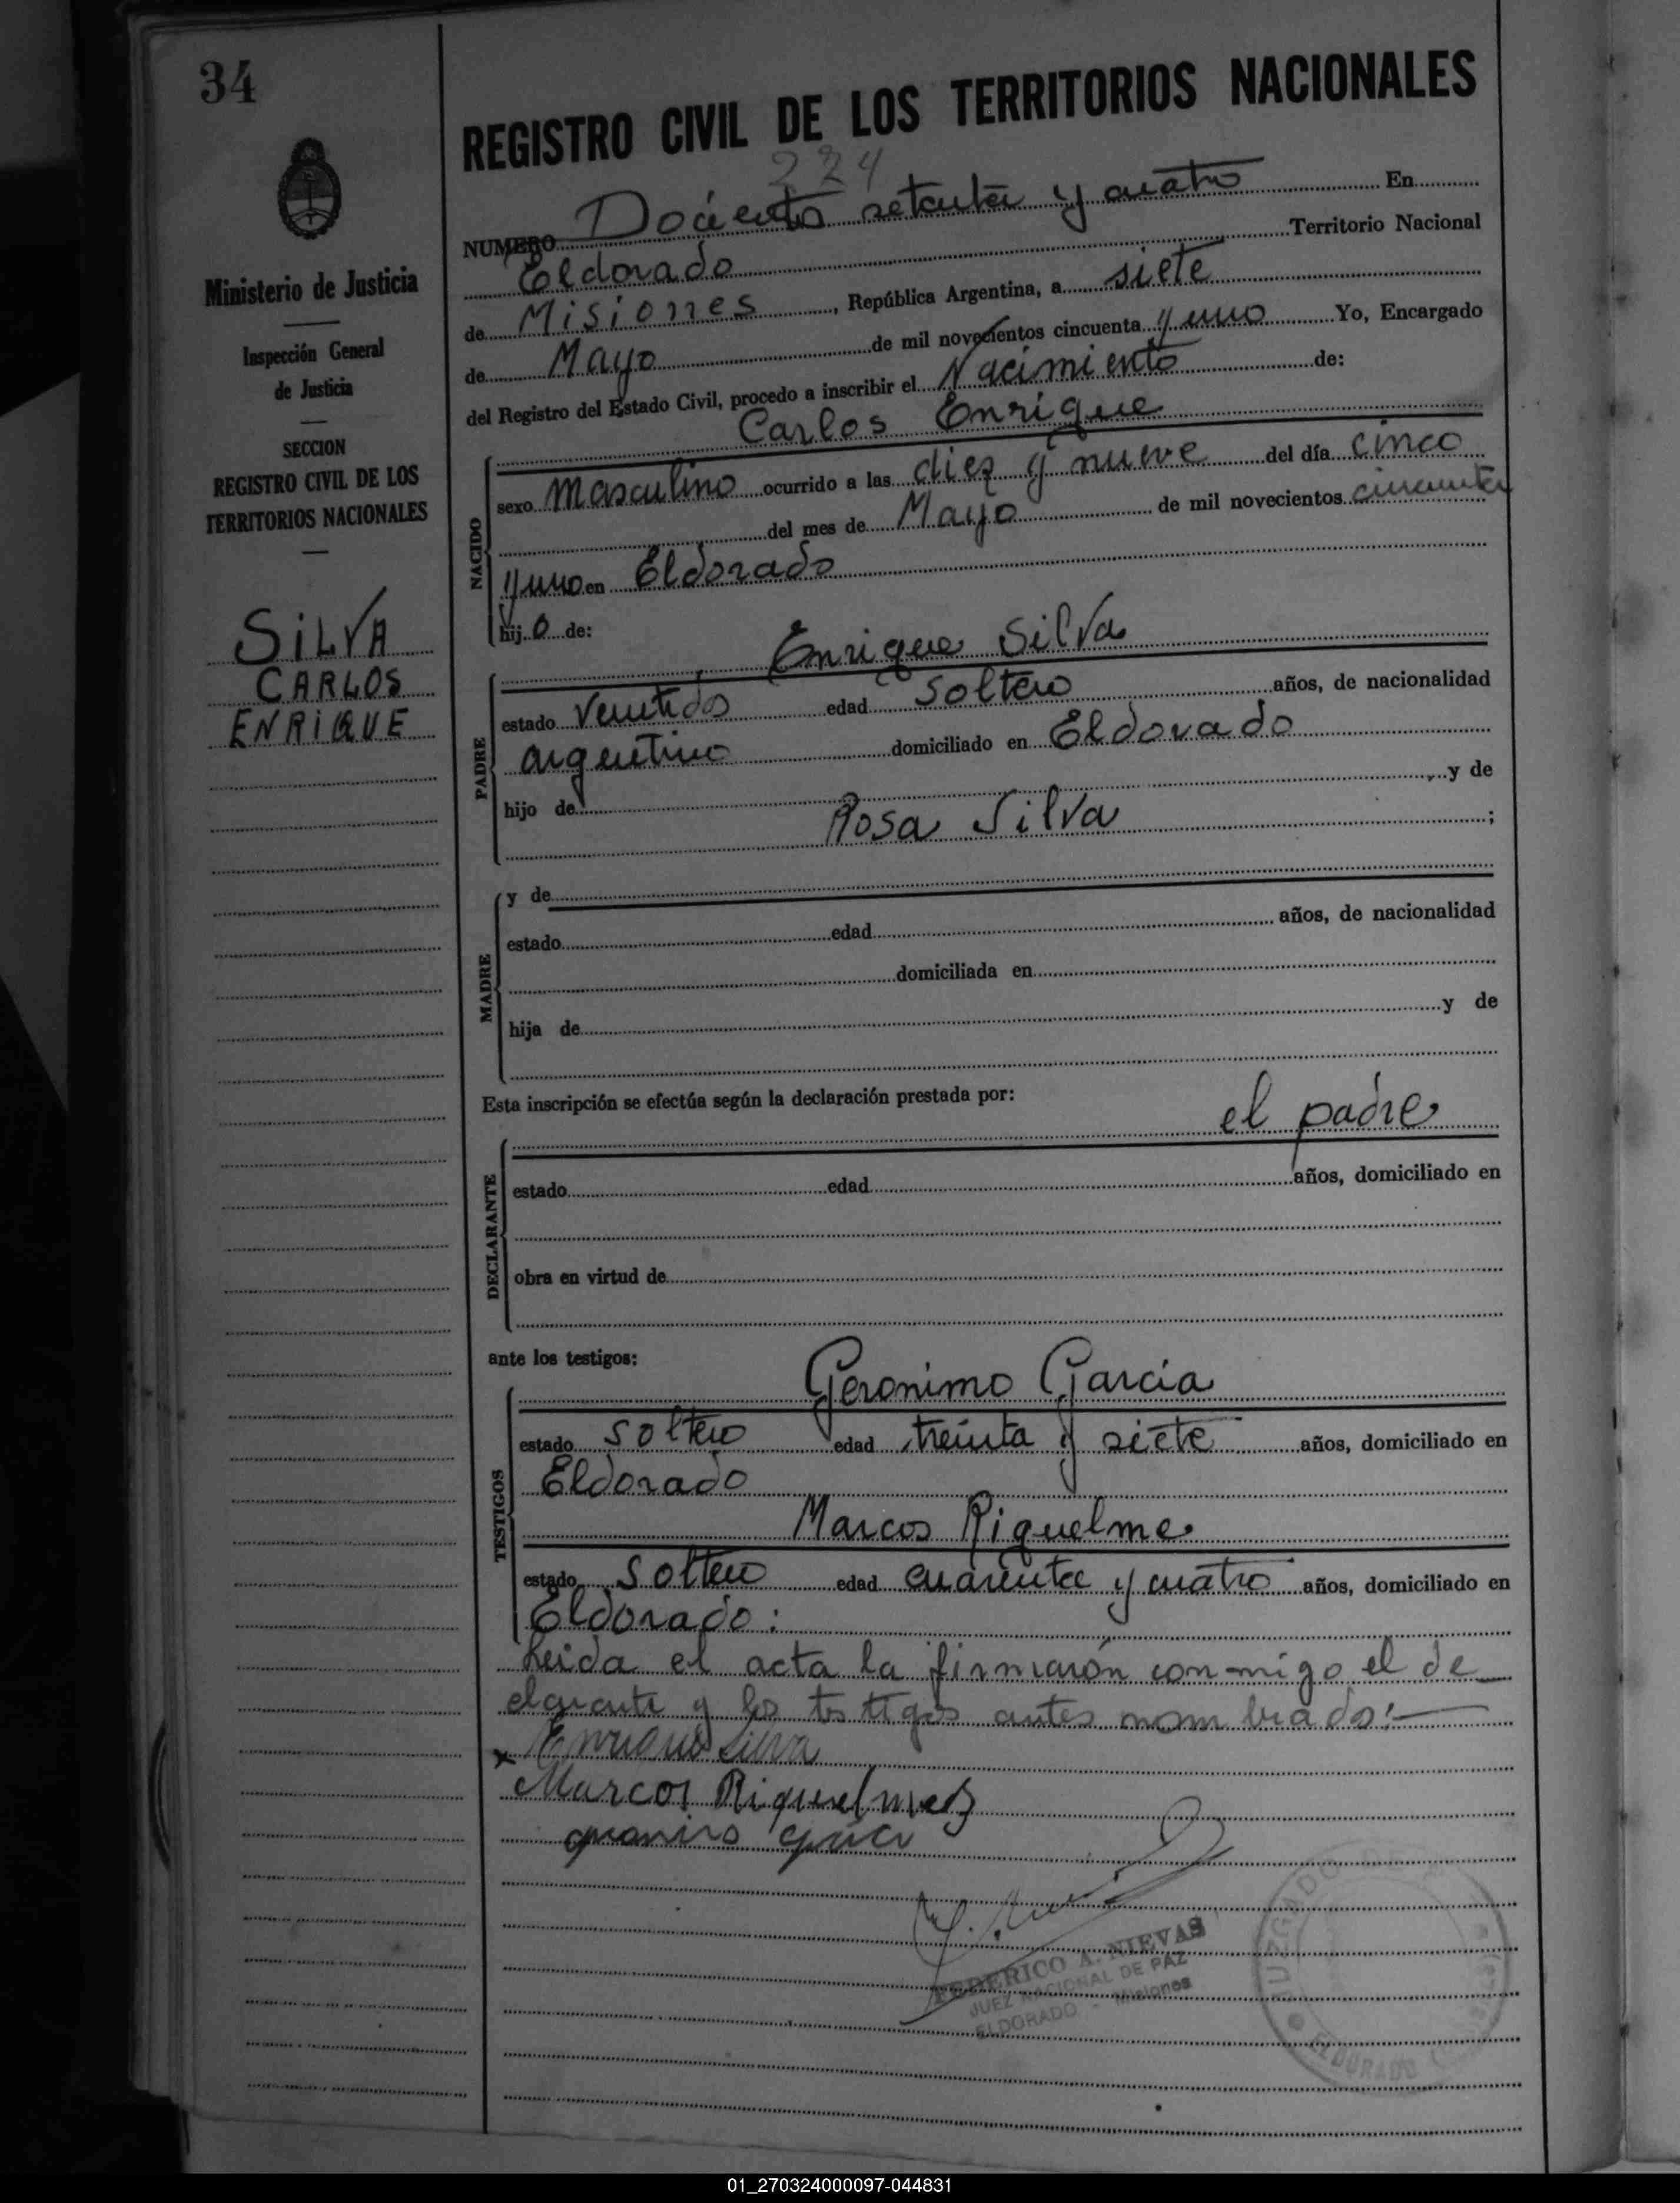 34
REGISTRO CIVIL DE LOS TERRITORIOS NACIONALES
224
NUMERO Dociento setenta y cuatro En
Eldorado Territorio Nacional
de Misiones, República Argentina, a siete
de Mayo de mil novecientos cincuenta y uno Yo, Encargado
del Registro del Estado Civil, procedo a inscribir el Nacimiento de:
Carlos Enrique
NACIDO
sexo masculino ocurrido a las diez y nueve del día cinco
del mes de Mayo de mil novecientos cincuenta
y uno en Eldorado
hijo de:
Enrique Silva
PADRE
estado ventidos edad soltero años, de nacionalidad
argentino domiciliado en Eldorado
hijo de y de
Rosa Silva ;
y de
MADRE
estado edad años, de nacionalidad
domiciliada en
hija de y de
Esta inscripción se efectúa según la declaración prestada por:
el padre
DECLARANTE
estado edad años, domiciliado en
obra en virtud de
ante los testigos:
Geronimo Garcia
TESTIGOS
estado soltero edad treinta y siete años, domiciliado en
Eldorado
Marcos Riquelme
estado soltero edad cuarenta y cuatro años, domiciliado en
Eldorado:
Leida el acta la firmarón conmigo el de
clarante y los testigos antes nombrados:—
x Enrique Silva
Marcos Riquelmes
FEDERICO A. NIEVAS
JUEZ NACIONAL DE PAZ
ELDORADO - Misiones
JUZGADO DE
ELDORADO
Ministerio de Justicia
Inspección General
de Justicia
SECCION
REGISTRO CIVIL DE LOS
TERRITORIOS NACIONALES
SILVA
CARLOS
ENRIQUE
01_270324000097-044831